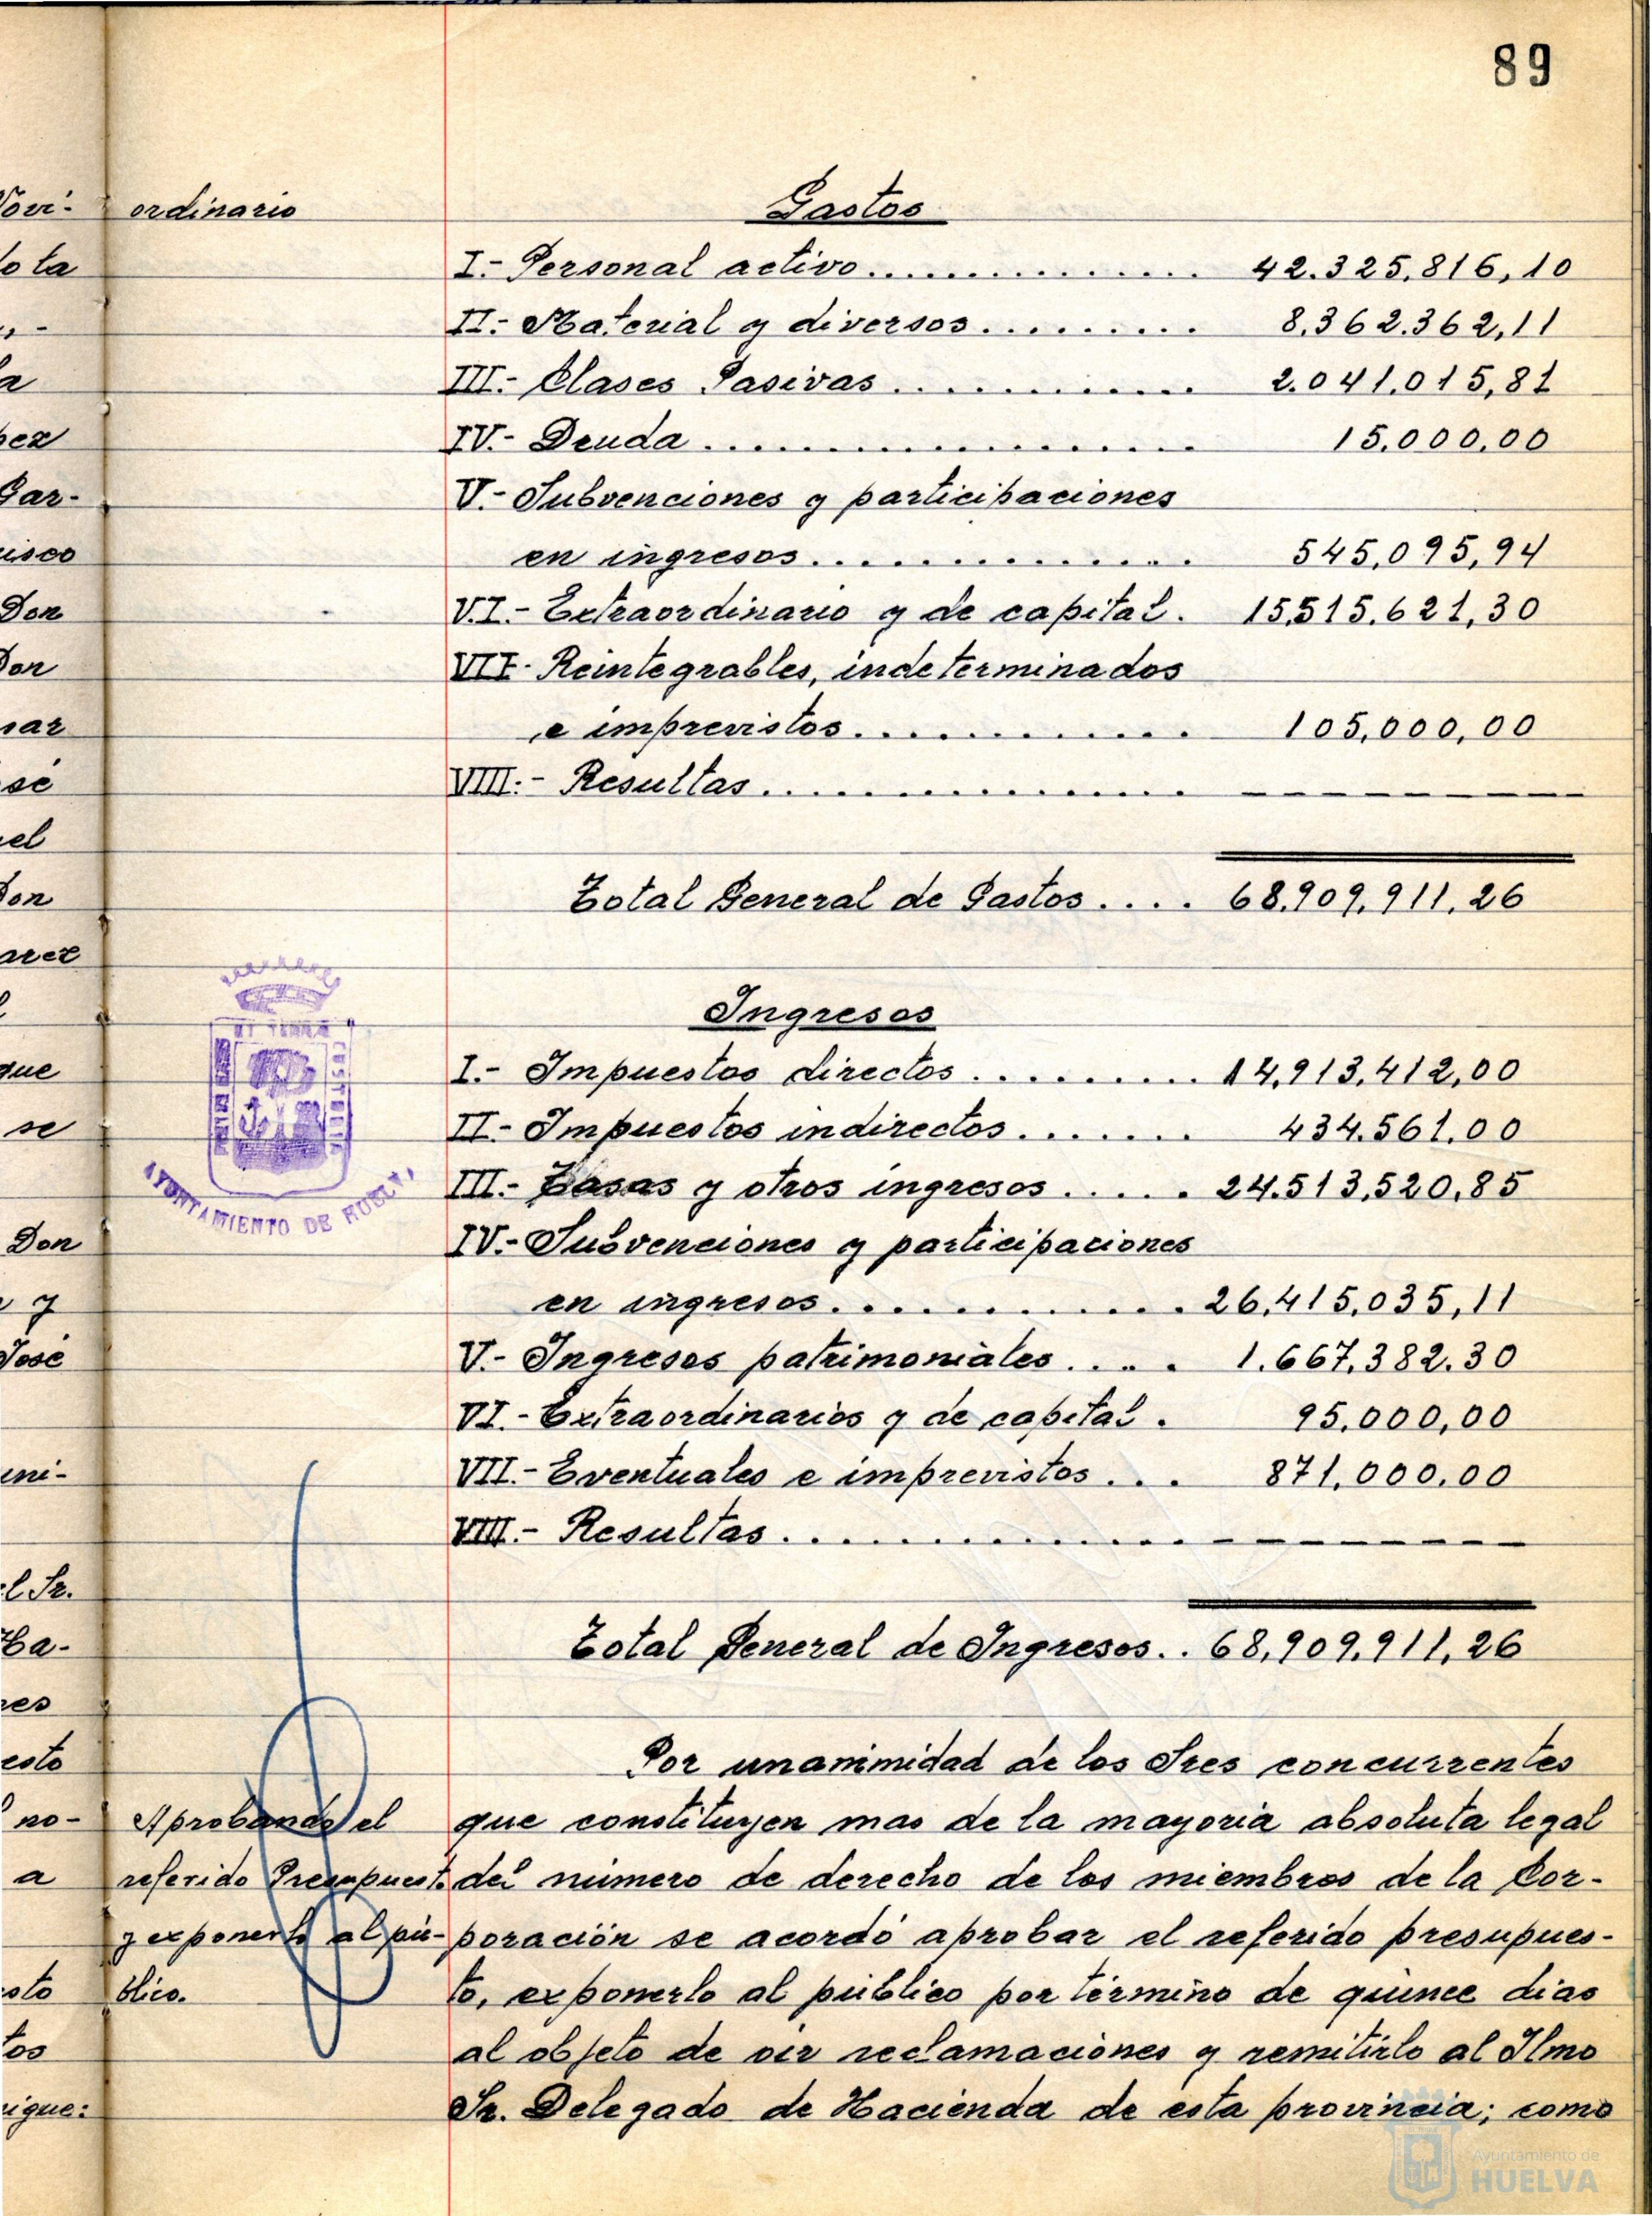 89
Gastos
ordinario
I.- Personal activo.............. 42.325.816,10
II.- Material y diversos......... 8.362.362,11
III.- Clases Pasivas............ 2.041.015,81
IV.- Deuda................... 15.000,00
V.- Subvenciones y participaciones
en ingresos............... 545,095,94
VI.- Extraordinario y de capital. 15.515.621,30
VII- Reintegrables, indeterminados
e imprevistos............. 105,000,00
VIII.- Resultas................ ________
Total General de Gastos.... 68.909.911,26
Ingresos
I.- Impuestos directos......... 14,913,412,00
II.- Impuestos indirectos....... 434.561,00
III.- Tasas y otros ingresos..... 24.513,520,85
IV.- Subvenciones y participaciones
en ingresos............. 26,415,035,11
V.- Ingresos patrimoniales.... 1.667.382.30
VI.- Extraordinarios y de capital. 95.000,00
VII.- Eventuales e imprevistos... 871,000.00
VIII.- Resultas................ ________
Total General de Ingresos.. 68,909.911,26
AYUNTAMIENTO DE HUELVA
Por unanimidad de los Sres concurrentes
que constituyen mas de la mayoria absoluta legal
del número de derecho de los miembros de la Cor-
poración se acordó aprobar el referido presupues-
to, exponerlo al público por término de quince dias
al objeto de oir reclamaciones y remitirlo al Ilmo
Sr. Delegado de Hacienda de esta provincia; como
Aprobando el
referido Presupuesto
y exponerlo al pú-
blico.
Novi-
ota
la
Gar-
Don
Don
sé
el
Don
que
se
Don
y
José
l Sr.
Ha-
res
esto
no-
a
sto
tos
igue:
Ayuntamiento de
HUELVA